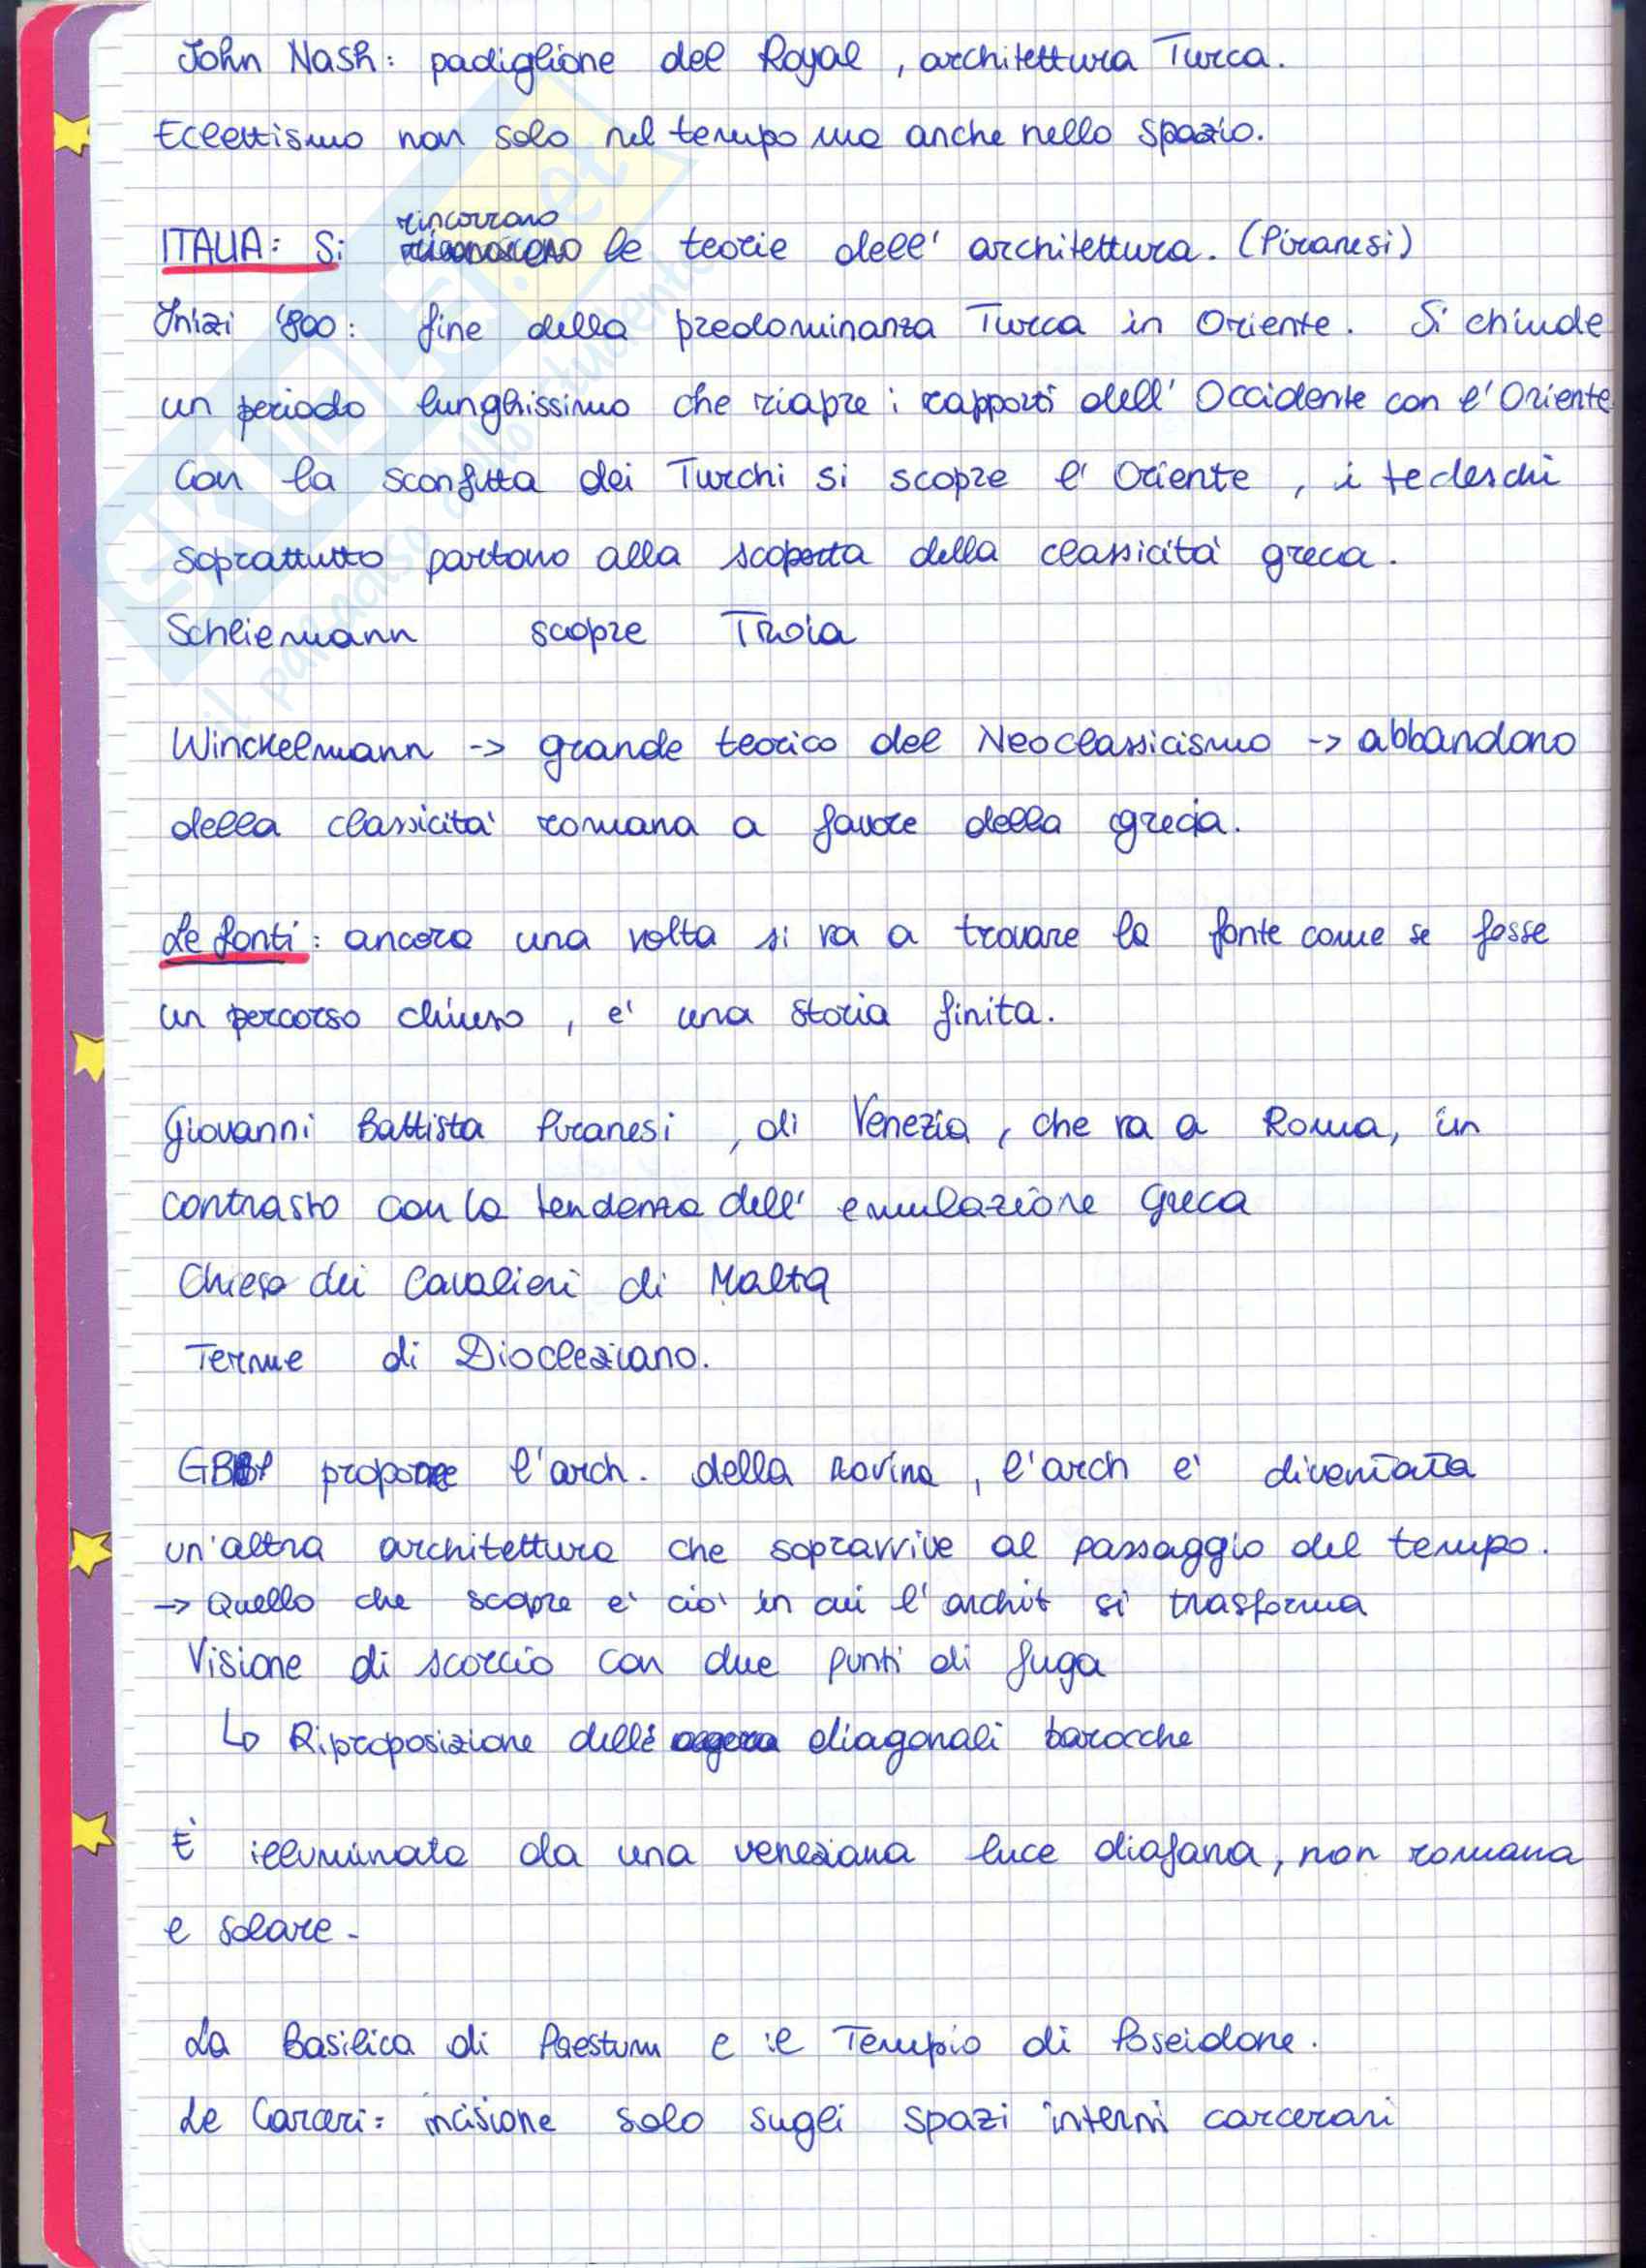 John Nash: padiglione del Royal, architettura Turca.
Eclettismo non solo nel tempo ma anche nello spazio.
rincorrono
ITALIA: Si riconoscono le teorie dell' architettura. (Piranesi)
Inizi '800: fine della predominanza Turca in Oriente. Si chiude
un periodo lunghissimo che riapre i rapporti dell' Occidente con l'Oriente
Con la sconfitta dei Turchi si scopre l' Oriente, i tedeschi
soprattutto partono alla scoperta della classicità greca.
Schliemann scopre Troia
Winckelmann -> grande teorico del Neoclassicismo -> abbandono
della classicità romana a favore della grecia.
Le fonti: ancora una volta si va a trovare la fonte come se fosse
un percorso chiuso, e' una storia finita.
Giovanni Battista Piranesi, di Venezia, che va a Roma, in
contrasto con la tendenza dell' emulazione Greca
Chiesa dei Cavalieri di Malta
Terme di Diocleziano.
GBP propone l'arch. della rovina, l'arch e' diventata
un'altra architettura che sopravvive al passaggio del tempo.
→ Quello che scopre e' ciò in cui l' archit si trasforma
Visione di scorcio con due punti di fuga
↳ Riproposizione delle diagonali barocche
E' illuminata da una veneziana luce diafana, non romana
e solare -
La Basilica di Paestum e il Tempio di Poseidone.
Le Carceri: incisione solo sugli spazi interni carcerari
SKUOLA.net
il paradiso dello studente